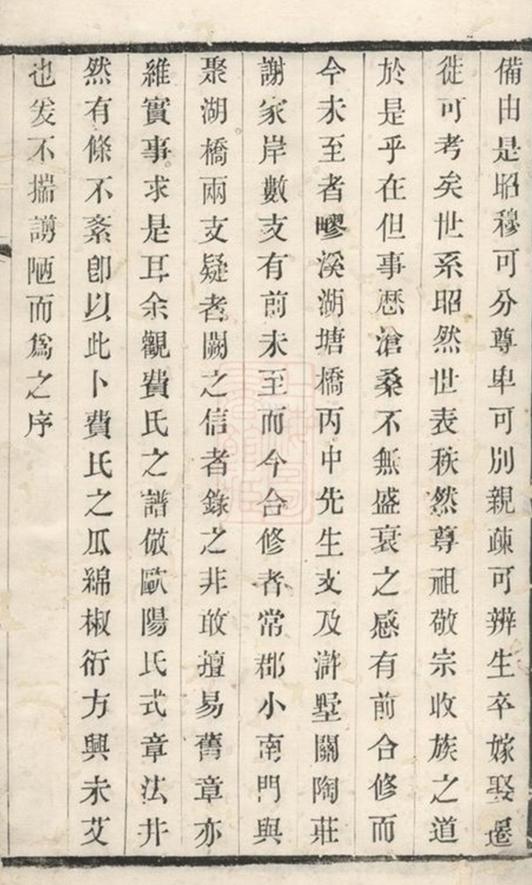 備由是昭穆可分尊卑可別親疎可辨生卒嫁娶遷
徙可考矣世系昭然世表秩然尊祖敬宗收族之道
於是乎在但事歷滄桑不無盛衰之感有前合修而
今未至者疁溪湖塘橋丙中先生支及滸墅關陶莊
謝家岸數支有前未至而今合修者常郡小南門與
聚湖橋兩支疑者闕之信者錄之非敢擅易舊章亦
維實事求是耳余觀費氏之譜倣歐陽氏式章法井
然有條不紊卽以此卜費氏之瓜綿椒衍方興未艾
也爰不揣譾陋而爲之序